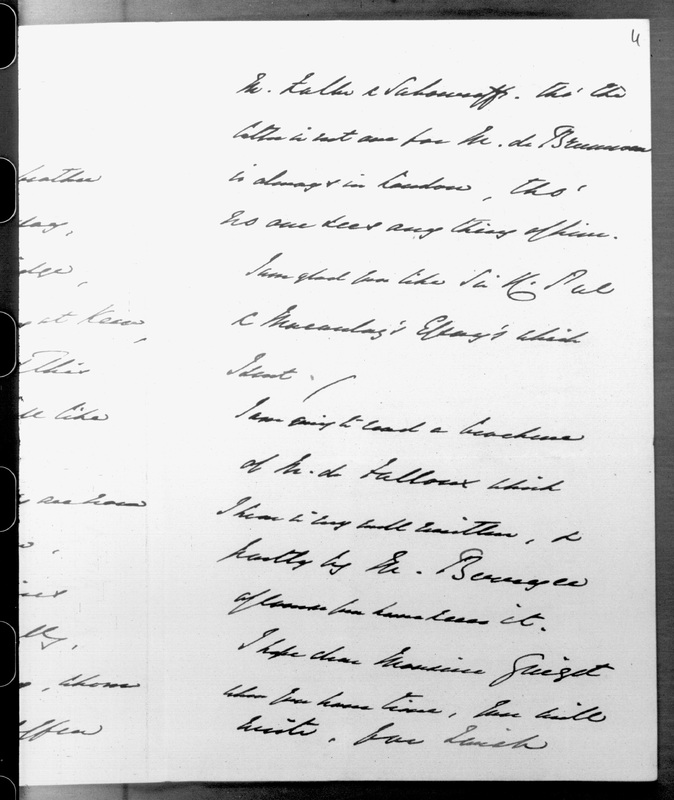 4
M. & Sabouroff. tho' the
latter is not one for M. de Brunnow
is always in London, tho'
no one sees any thing of him.
I am glad you like Sir R. Peel
& Macaulay's Essay's which
I sent.
I am going to read a brochure
of M. de Falloux which
I hear is very well written, &
partly by M. Berryer
of course you have seen it.
I hope dear Monsieur Guizot
when you have time, you will
write, for such
brother
day,
at Kew,
This
like
are now
,
whom
often